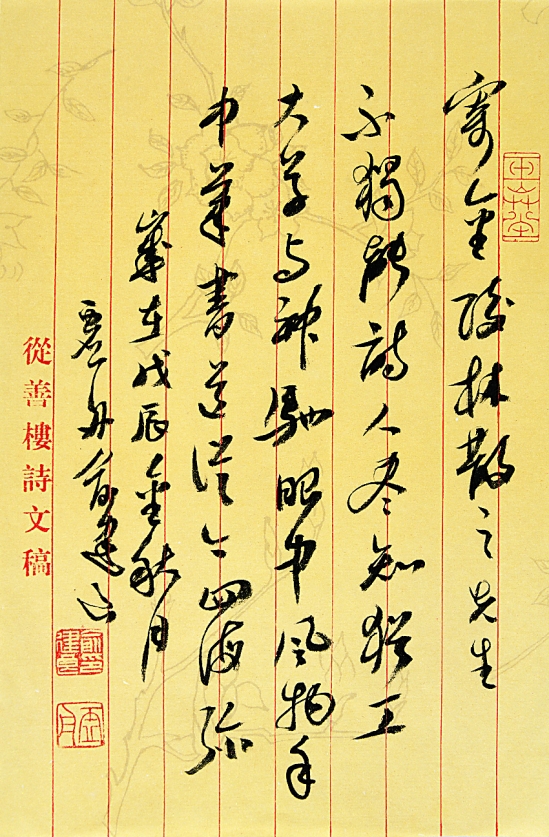 寄金陵林散之先生
不獨能詩人尽知猶工
大草与神馳眼中風物手
中筆書道從今四海弥
歲在戊辰金秋月
舟俞建
從善樓詩文稿